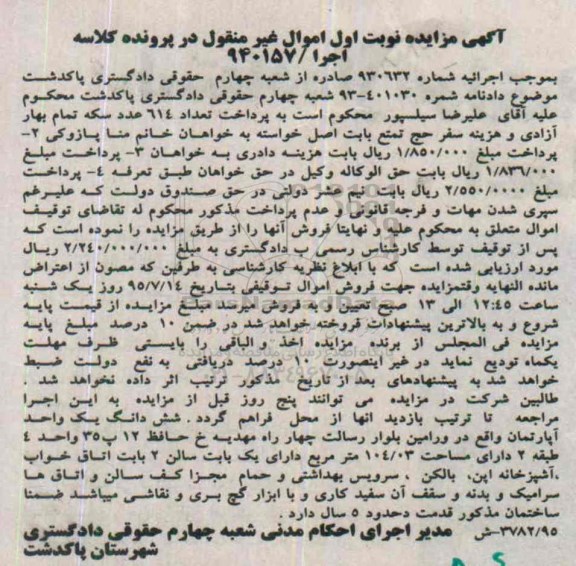 آگهی مزایده نوبت اول اموال غیر منقول در پرونده کلاسه
اجرا /۹۴۰۱۵۷
بموجب اجرائیه شماره ۹۳۰۶۳۲ صادره از شعبه چهارم حقوقی دادگستری پاکدشت
موضوع دادنامه شمره ۴۰۱۰۳۰-۹۳ شعبه چهارم حقوقی دادگستری پاکدشت محکوم
علیه آقای علیرضا سیلسپور محکوم است به پرداخت تعداد ۶۱۴ عدد سکه تمام بهار
آزادی و هزینه سفر حج تمتع بابت اصل خواسته به خواهان خانم منا پازوکی ۲-
پرداخت مبلغ ۱/۸۵۰/۰۰۰ ریال بابت هزینه دادری به خواهان ۳- پرداخت مبلغ
۱/۸۳۶/۰۰۰ ریال بابت حق الوکاله وکیل در حق خواهان طبق تعرفه ۴- پرداخت
مبلغ ۲/۵۵۰/۰۰۰۰ ریال بابت نیم عشر دولتی در حق صندوق دولت که علیرغم
سپری شدن مهات و فرجه قانونی و عدم پرداخت مذکور محکوم له تقاضای توقیف
اموال متعلق به محکوم علیه و نهایتا فروش آنها را از طریق مزایده را نموده است که
پس از توقیف توسط کارشناس رسمی ب دادگستری به مبلغ ۲/۲۴۰/۰۰۰/۰۰۰ ریال
مورد ارزیابی شده است که با ابلاغ نظریه کارشناسی به طرفین که مصون از اعتراض
مانده النهایه وقتمزایده جهت فروش اموال توقیفی بتاریخ ۹۵/۷/۱۴ روز یک شنبه
ساعت ۱۲:۴۵ الی ۱۳ صبح تعیین و به فروش میرسد مبلغ مزایده از قیمت پایه
شروع و به بالاترین پیشنهادات فروخته خواهد شد در ضمن ۱۰ درصد مبلغ پایه
مزایده فی المجلس از برنده مزایده اخذ و الباقی را بایستی ظرف مهلت
یکماه تودیع نماید در غیر اینصورت ۱۰ درصد دریافتی به نفع دولت ضبط
خواهد شد به پیشنهادهای بعد از تاریخ مذکور ترتیب اثر داده نخواهد شد .
طالبین شرکت در مزایده می توانند پنج روز قبل از مزایده به این اجرا
مراجعه تا ترتیب بازدید انها از محل فراهم گردد . شش دانگ یک واحد
آپارتمان واقع در ورامین بلوار رسالت چهار راه مهدیه خ حافظ ۱۲ پ۳۵ واحد ٤
طبقه ۲ دارای مساحت ۱۰۴/۰۳ متر مربع دارای یک بابت سالن ۲ بابت اتاق خواب
،آشپزخانه اپن، بالکن ، سرویس بهداشتی و حمام مجزا کف سالن و اتاق ها
سرامیک و بدنه و سقف آن سفید کاری و با ابزار گچ بری و نقاشی میباشد ضمنا
ساختمان مذکور قدمت دحدود ۵ سال دارد .
۳۷۸۲/۹۵-ش مدیر اجرای احکام مدنی شعبه چهارم حقوقی دادگستری
شهرستان پاکدشت